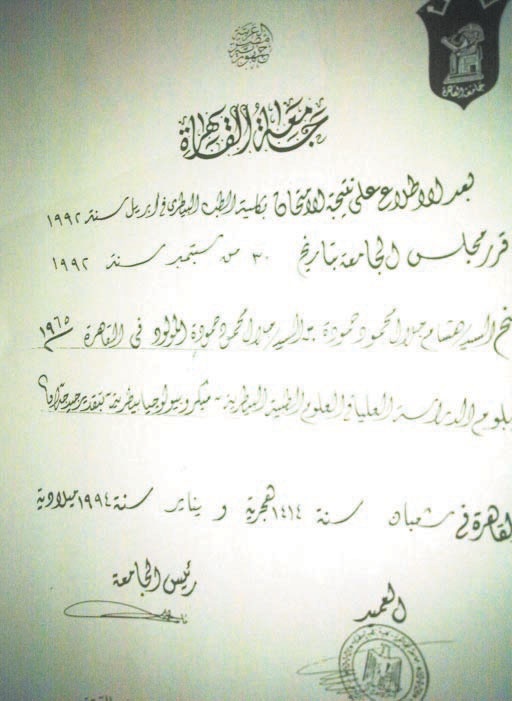 جمهورية مصر العربية
جامعة القاهرة
جامعة القاهرة
بعد الاطلاع على نتيجة الامتحان بكلية الطب البيطرى فى ابريل سنة ١٩٩٢
قرر مجلس الجامعة بتاريخ ٣٠ من سبتمبر سنة ١٩٩٢
منح السيد هشام جلال محمود حمودة السيد جلال محمود حمودة المولود فى القاهرة ١٩٦٥
دبلوم الدراسة العليا فى العلوم الطبية البيطرية - ميكروبيولوجيا بيطرية بتقدير جيد جداً
القاهرة فى شعبان سنة ١٤١٤ هجرية و يناير سنة ١٩٩٤ ميلادية
العميد
رئيس الجامعة